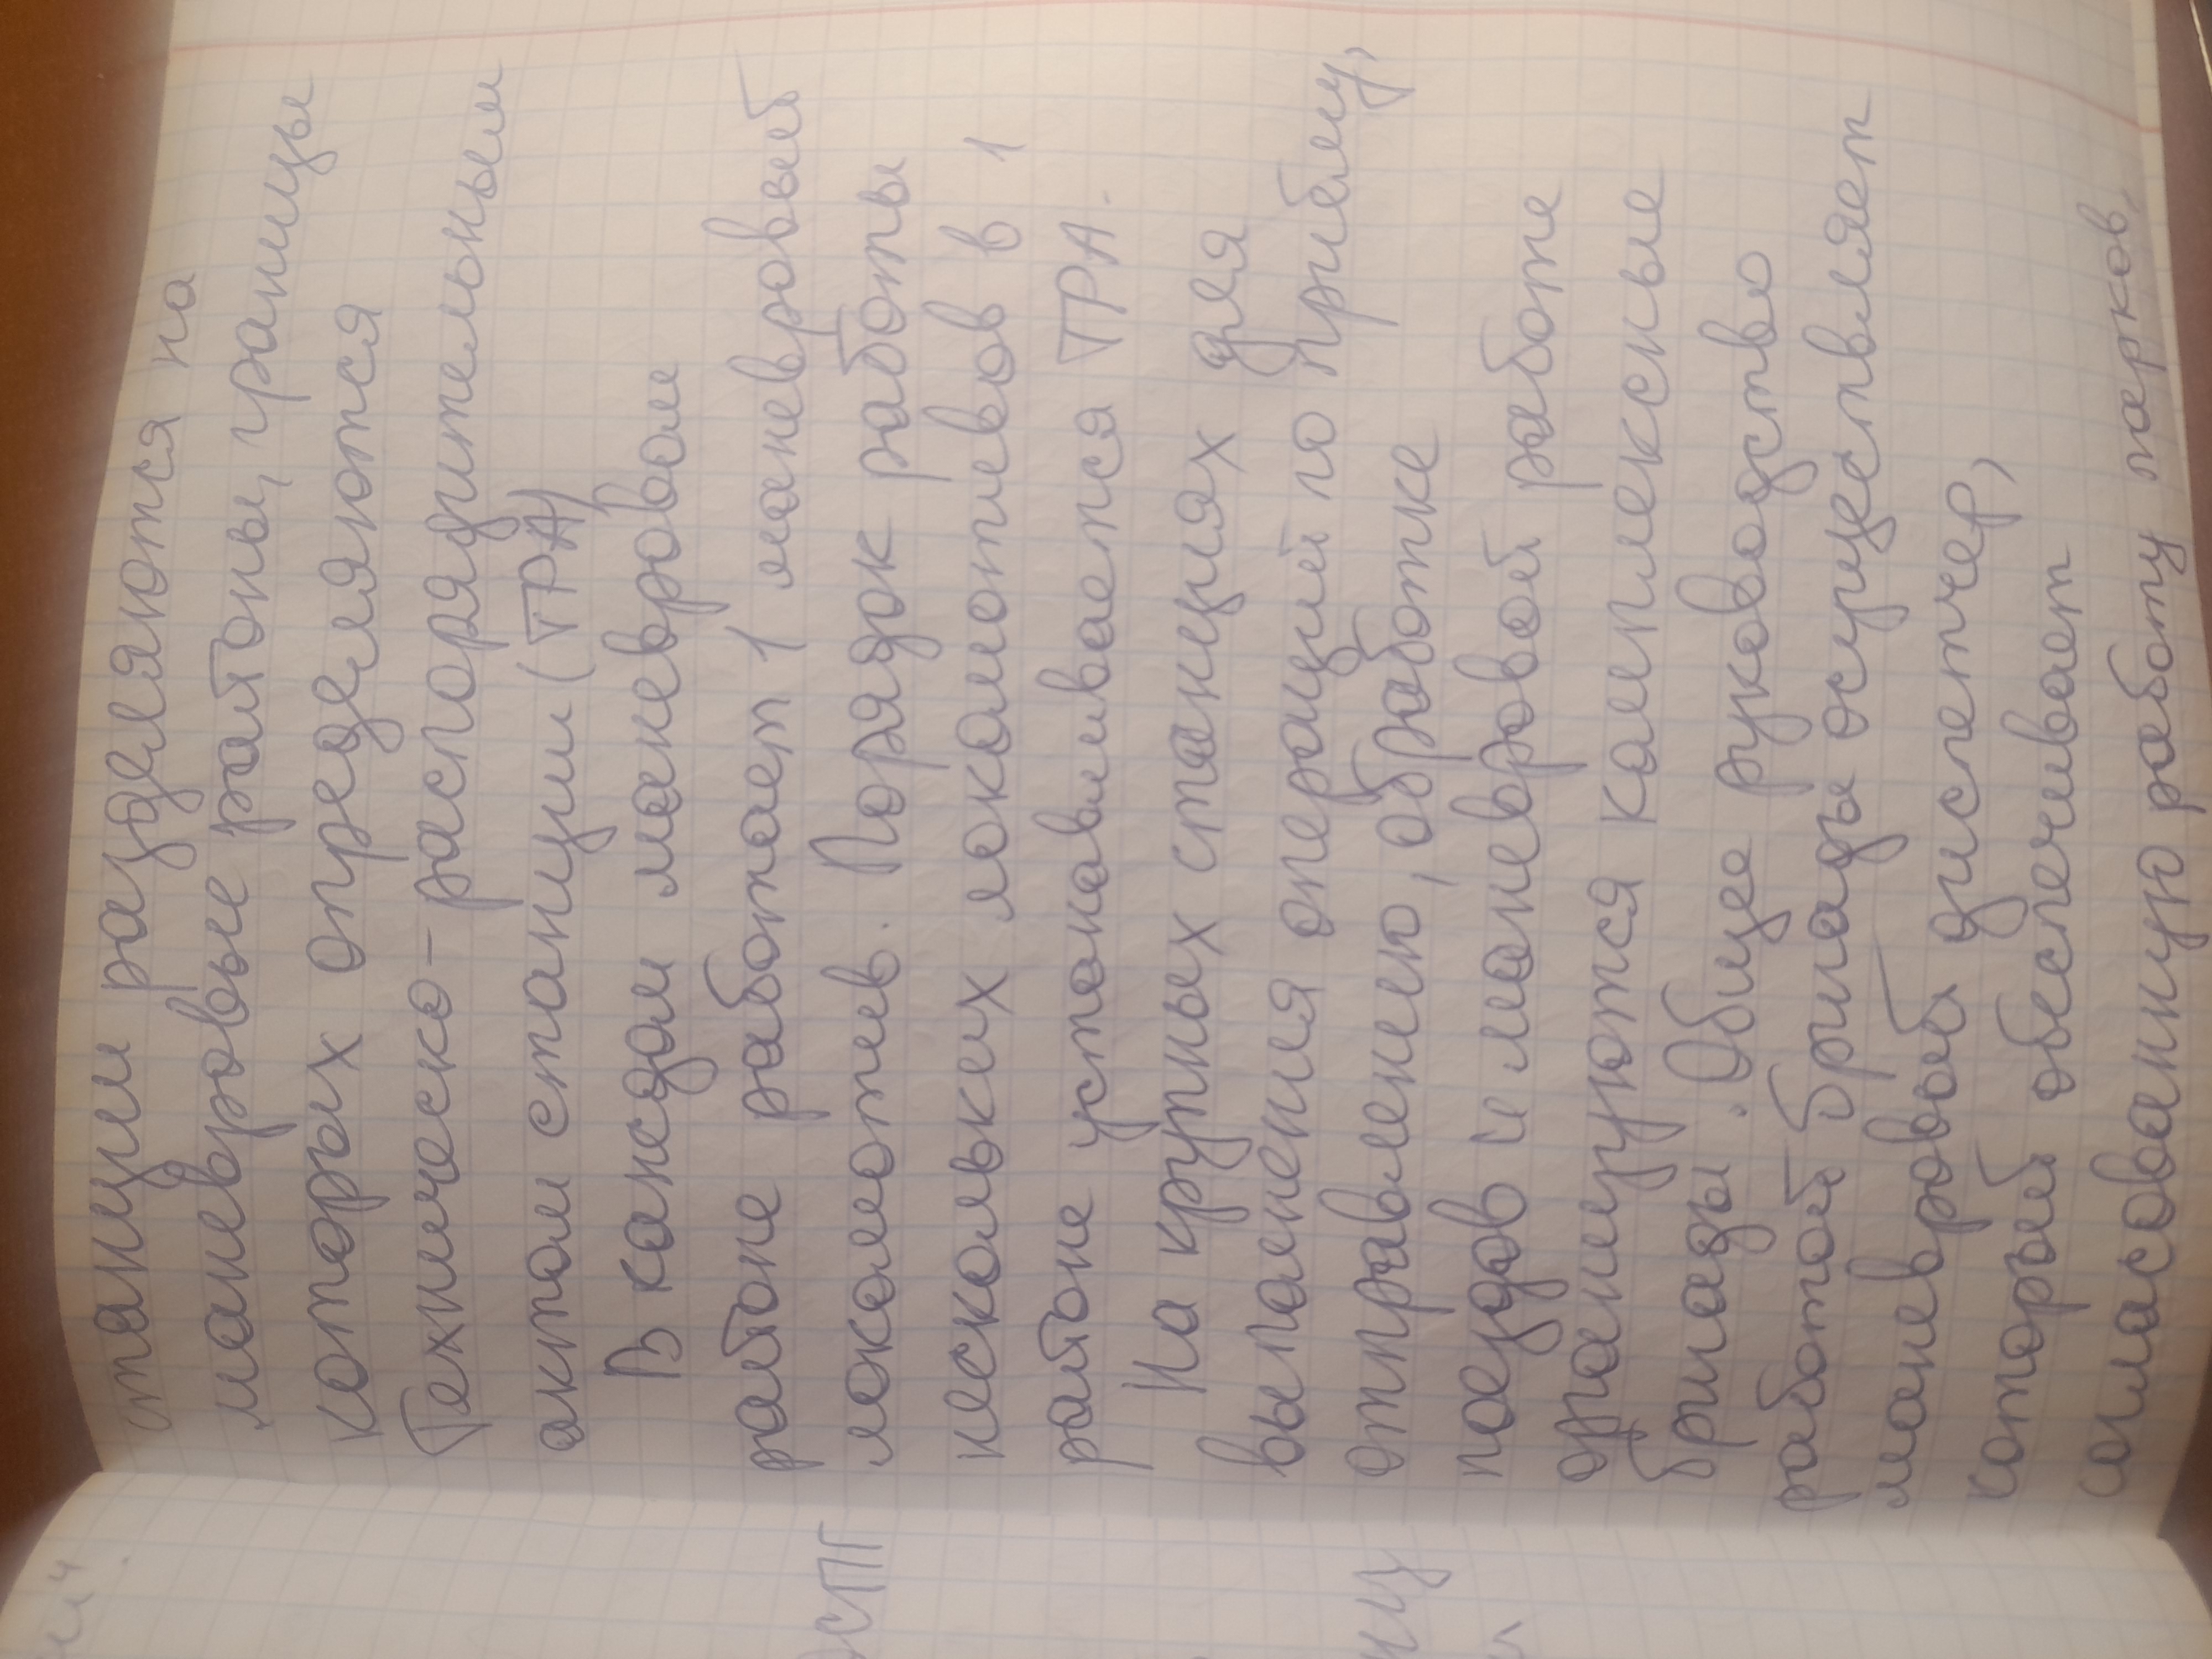 станции разделяются на
маневровые районы, границы
которых определяются
Техническо-распорядительным
актом станции (ТРА)
В каждом маневровом
районе работает 1 маневровый
локомотив. Порядок работы
нескольких локомотивов в 1
районе устанавливается ТРА.
На крупных станциях для
выполнения операций по прибытию,
отправлению, обработке
поездов и маневровой работе
организуются комплексные
бригады. Общее руководство
работой бригады осуществляет
маневровый диспетчер,
который обеспечивает
согласованную работу парков,
ОСПГ